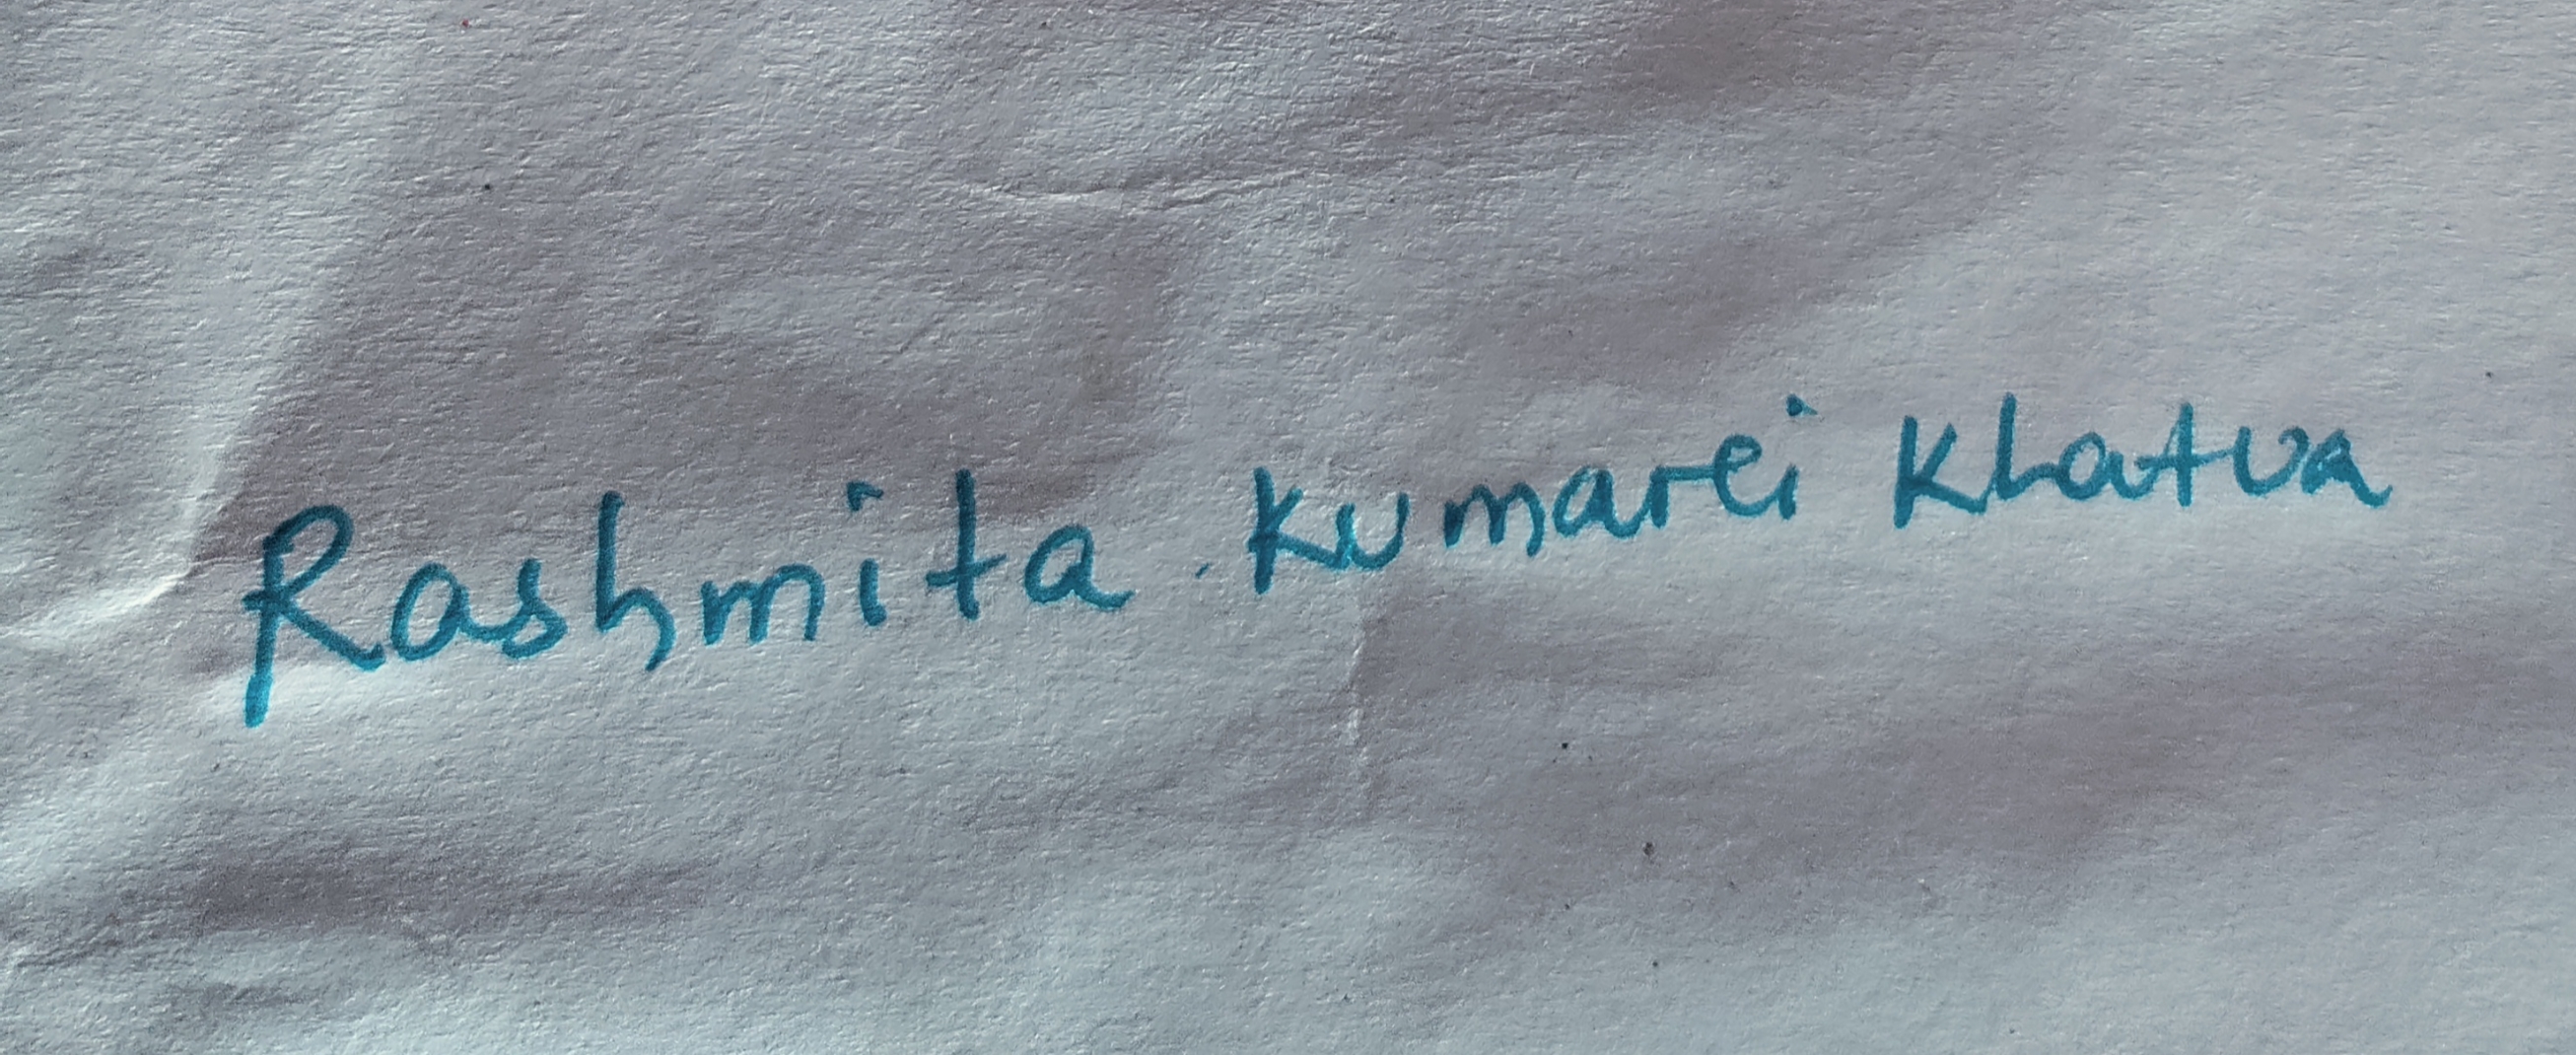 Rashmita Kumarei Khatua